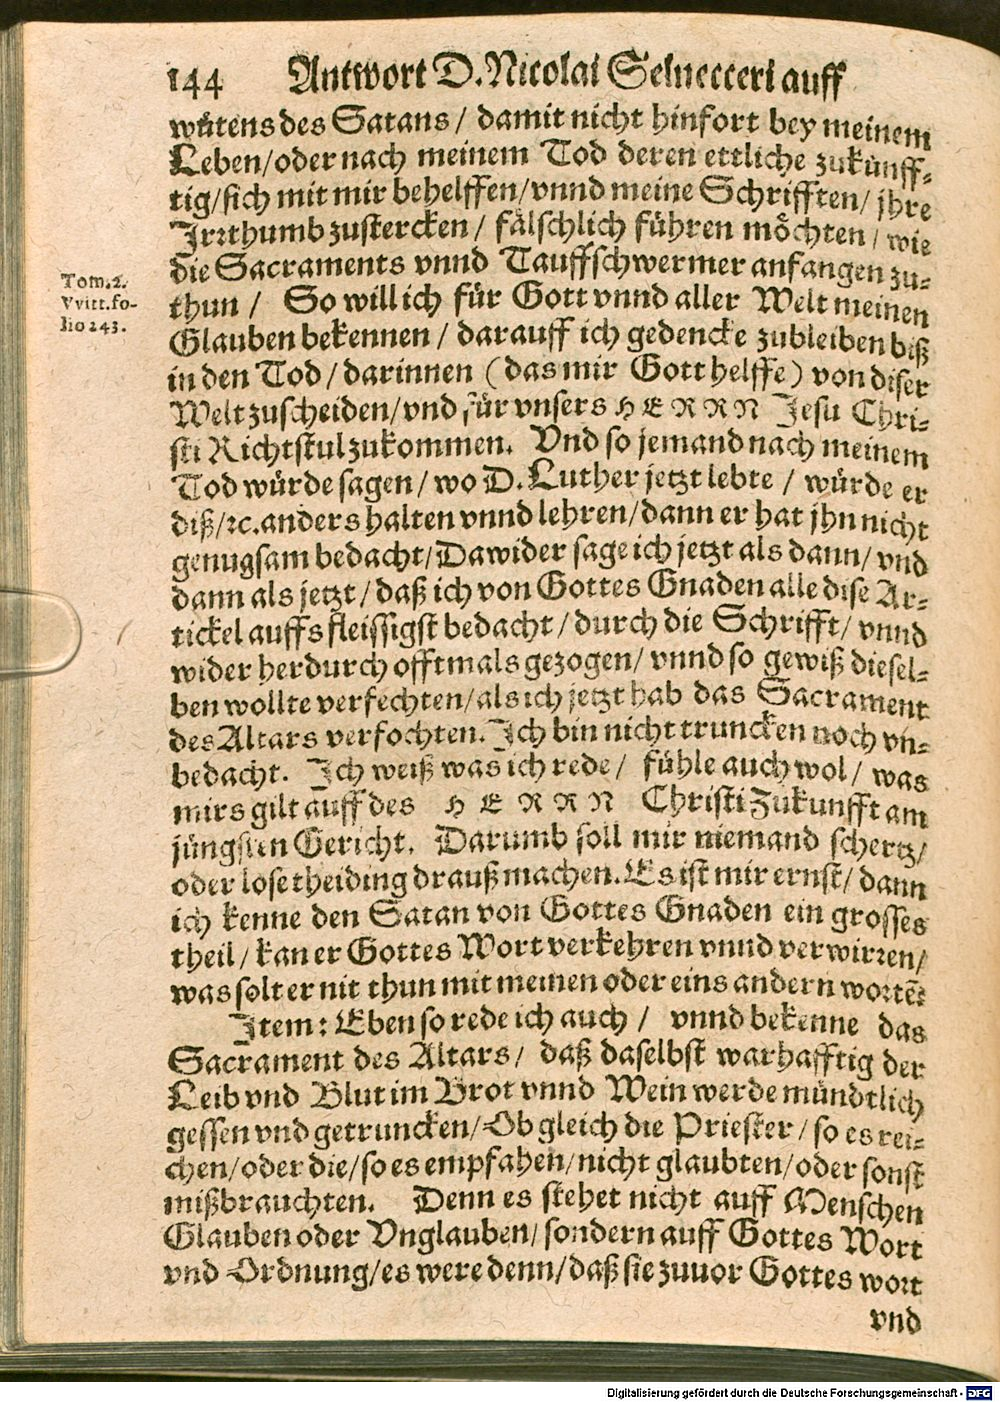 144 Antwort D. Nicolai Selnecceri auff
wütens des Satans / damit nicht hinfort bey meinem
Leben/oder nach meinem Tod deren ettliche zukünff-
tig/sich mit mir behelffen/vnnd meine Schrifften/ jhre
Jrrthumb zustercken / fälschlich führen möchten / wie
die Sacraments vnnd Tauffschwermer anfangen zu-
Tom. 2.
Vvitt. fo-
lio 243.
thun / So will ich für Gott vnnd aller Welt meinen
Glauben bekennen / darauff ich gedencke zubleiben biß
in den Tod / darinnen (das mir Gott helffe) von diser
Welt zuscheiden/vnd für vnsers HERRN Jesu Chri-
sti Richtstul zukommen. Vnd so jemand nach meinem
Tod würde sagen / wo D. Luther jetzt lebte / würde er
diß/ꝛc. anders halten vnnd lehren/dann er hat jhn nicht
genugsam bedacht/Dawider sage ich jetzt als dann/ vnd
dann als jetzt / daß ich von Gottes Gnaden alle dise Ar-
tickel auffs fleissigst bedacht / durch die Schrifft/ vnnd
wider herdurch offtmals gezogen/ vnnd so gewiß diesel-
ben wollte verfechten/als ich jetzt hab das Sacrament
des Altars verfochten. Jch bin nicht truncken noch vn-
bedacht. Jch weiß was ich rede / fühle auch wol / was
mirs gilt auff des HERRN Christi Zukunfft am
jüngsten Gericht. Darumb soll mir niemand schertz/
oder lose theiding drauß machen. Es ist mir ernst/ dann
ich kenne den Satan von Gottes Gnaden ein grosses
theil / kan er Gottes Wort verkehren vnnd verwirren/
was solt er nit thun mit meinen oder eins andern wortē?
Jtem: Eben so rede ich auch / vnnd bekenne das
Sacrament des Altars / daß daselbst warhafftig der
Leib vnd Blut im Brot vnnd Wein werde mündtlich
gessen vnd getruncken/Ob gleich die Priester / so es rei-
chen/oder die/so es empfahen/nicht glaubten/oder sonst
mißbrauchten. Denn es stehet nicht auff Menschen
Glauben oder Vnglauben/sondern auff Gottes Wort
vnd Ordnung/es were denn/daß sie zuuor Gottes wort
vnd
Digitalisierung gefördert durch die Deutsche Forschungsgemeinschaft - DFG